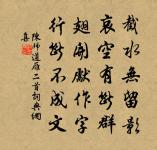 截水無留影
哀空有斷群
翅開獻作字
行斷不成文
陳師道雁二首詞典網
集